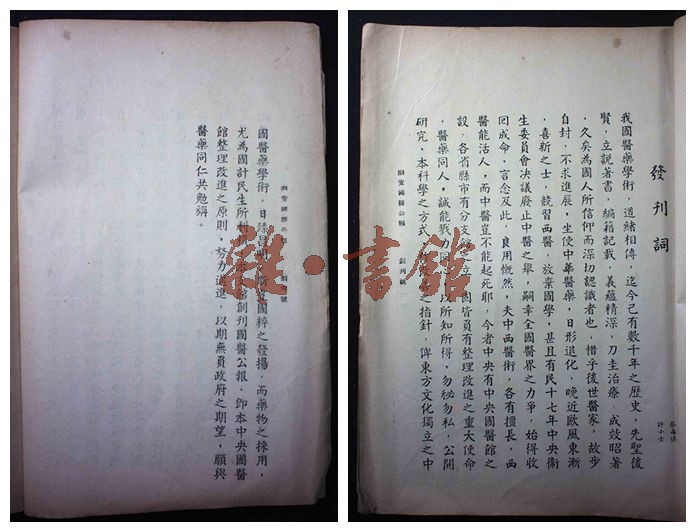 發刊詞
我國醫藥學術，道緒相傳，迄今已有數千年之歷史，先聖後
賢，立說著書，編籍記載，義蘊精深，刀圭治療，成效昭著
，久矣為國人所信仰而深切認識者也，惜乎後世醫家，故步
自封，不求進展，坐使中華醫藥，日形退化，晚近歐風東漸
，喜新之士，競習西醫，放棄國學，甚且有民十七年中央衛
生委員會決議廢止中醫之舉，嗣幸全國醫界之力爭，始得收
回成命，言念及此，良用慨然，夫中西醫術，各有擅長，西
醫能活人，而中醫豈不能起死耶，今者中央有中央國醫館之
設，各省縣市有分支館之立，國皆員有整理改進之重大使命
，醫藥同人，誠能戮力同心，以所知所得，勿秘勿私，公開
研究，本科學之方式，之指針，俾東方文化獨立之中
國醫公報 創刊號
國醫藥學術，日臻昌，國粹之發揚，而藥物之採用，
尤為國計民生所利，創刊國醫公報，即本中央國醫
館整理改進之原則，努力邁進，以期無員政府之期望，願與
醫藥同仁共勉旃。
雜·書館